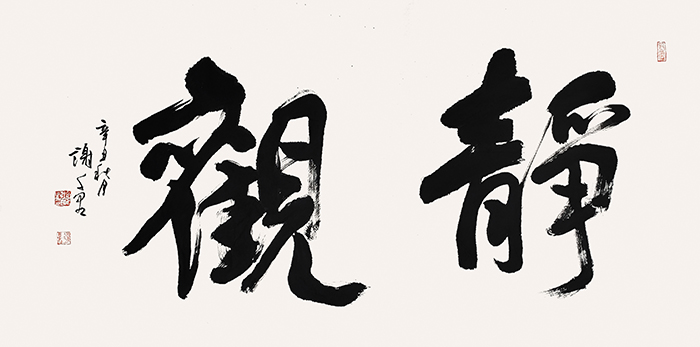 靜觀
辛丑秋月
謝